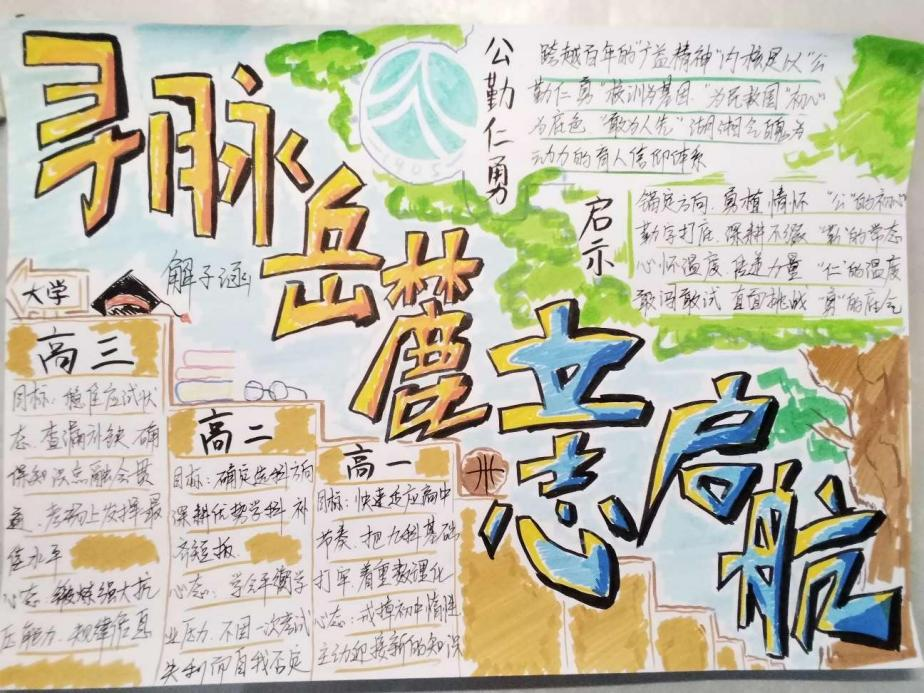 寻脉
岳麓
立志启航
解子涵
1905
公勤仁勇
跨越百年的“广益精神”内核是以“公
勤仁勇”校训为基因、“为民救国”初心
为底色 “敢为人先”湖湘气魄为
动力的育人信仰体系
启示
锚定方向 勇植情怀 “公”的初心
勤字打底 深耕不缀 “勤”的常态
心怀温度 传递力量 “仁”的温度
敢闯敢试 直面挑战 “勇”的底气
大学
高三
目标：稳住应试状
态 查漏补缺 确
保知识点融会贯
通、考场上发挥最
佳水平
心态 锻炼强大抗
压能力、规律作息
高二
目标：确定选科方向
深耕优势学科 补
齐短板
心态：学会平衡学
业压力、不因一次考试
失利而自我否定
高一
目标：快速适应高中
节奏、把九科基础
打牢 着重数理化
心态：戒掉初中惰性
主动迎接新的知识